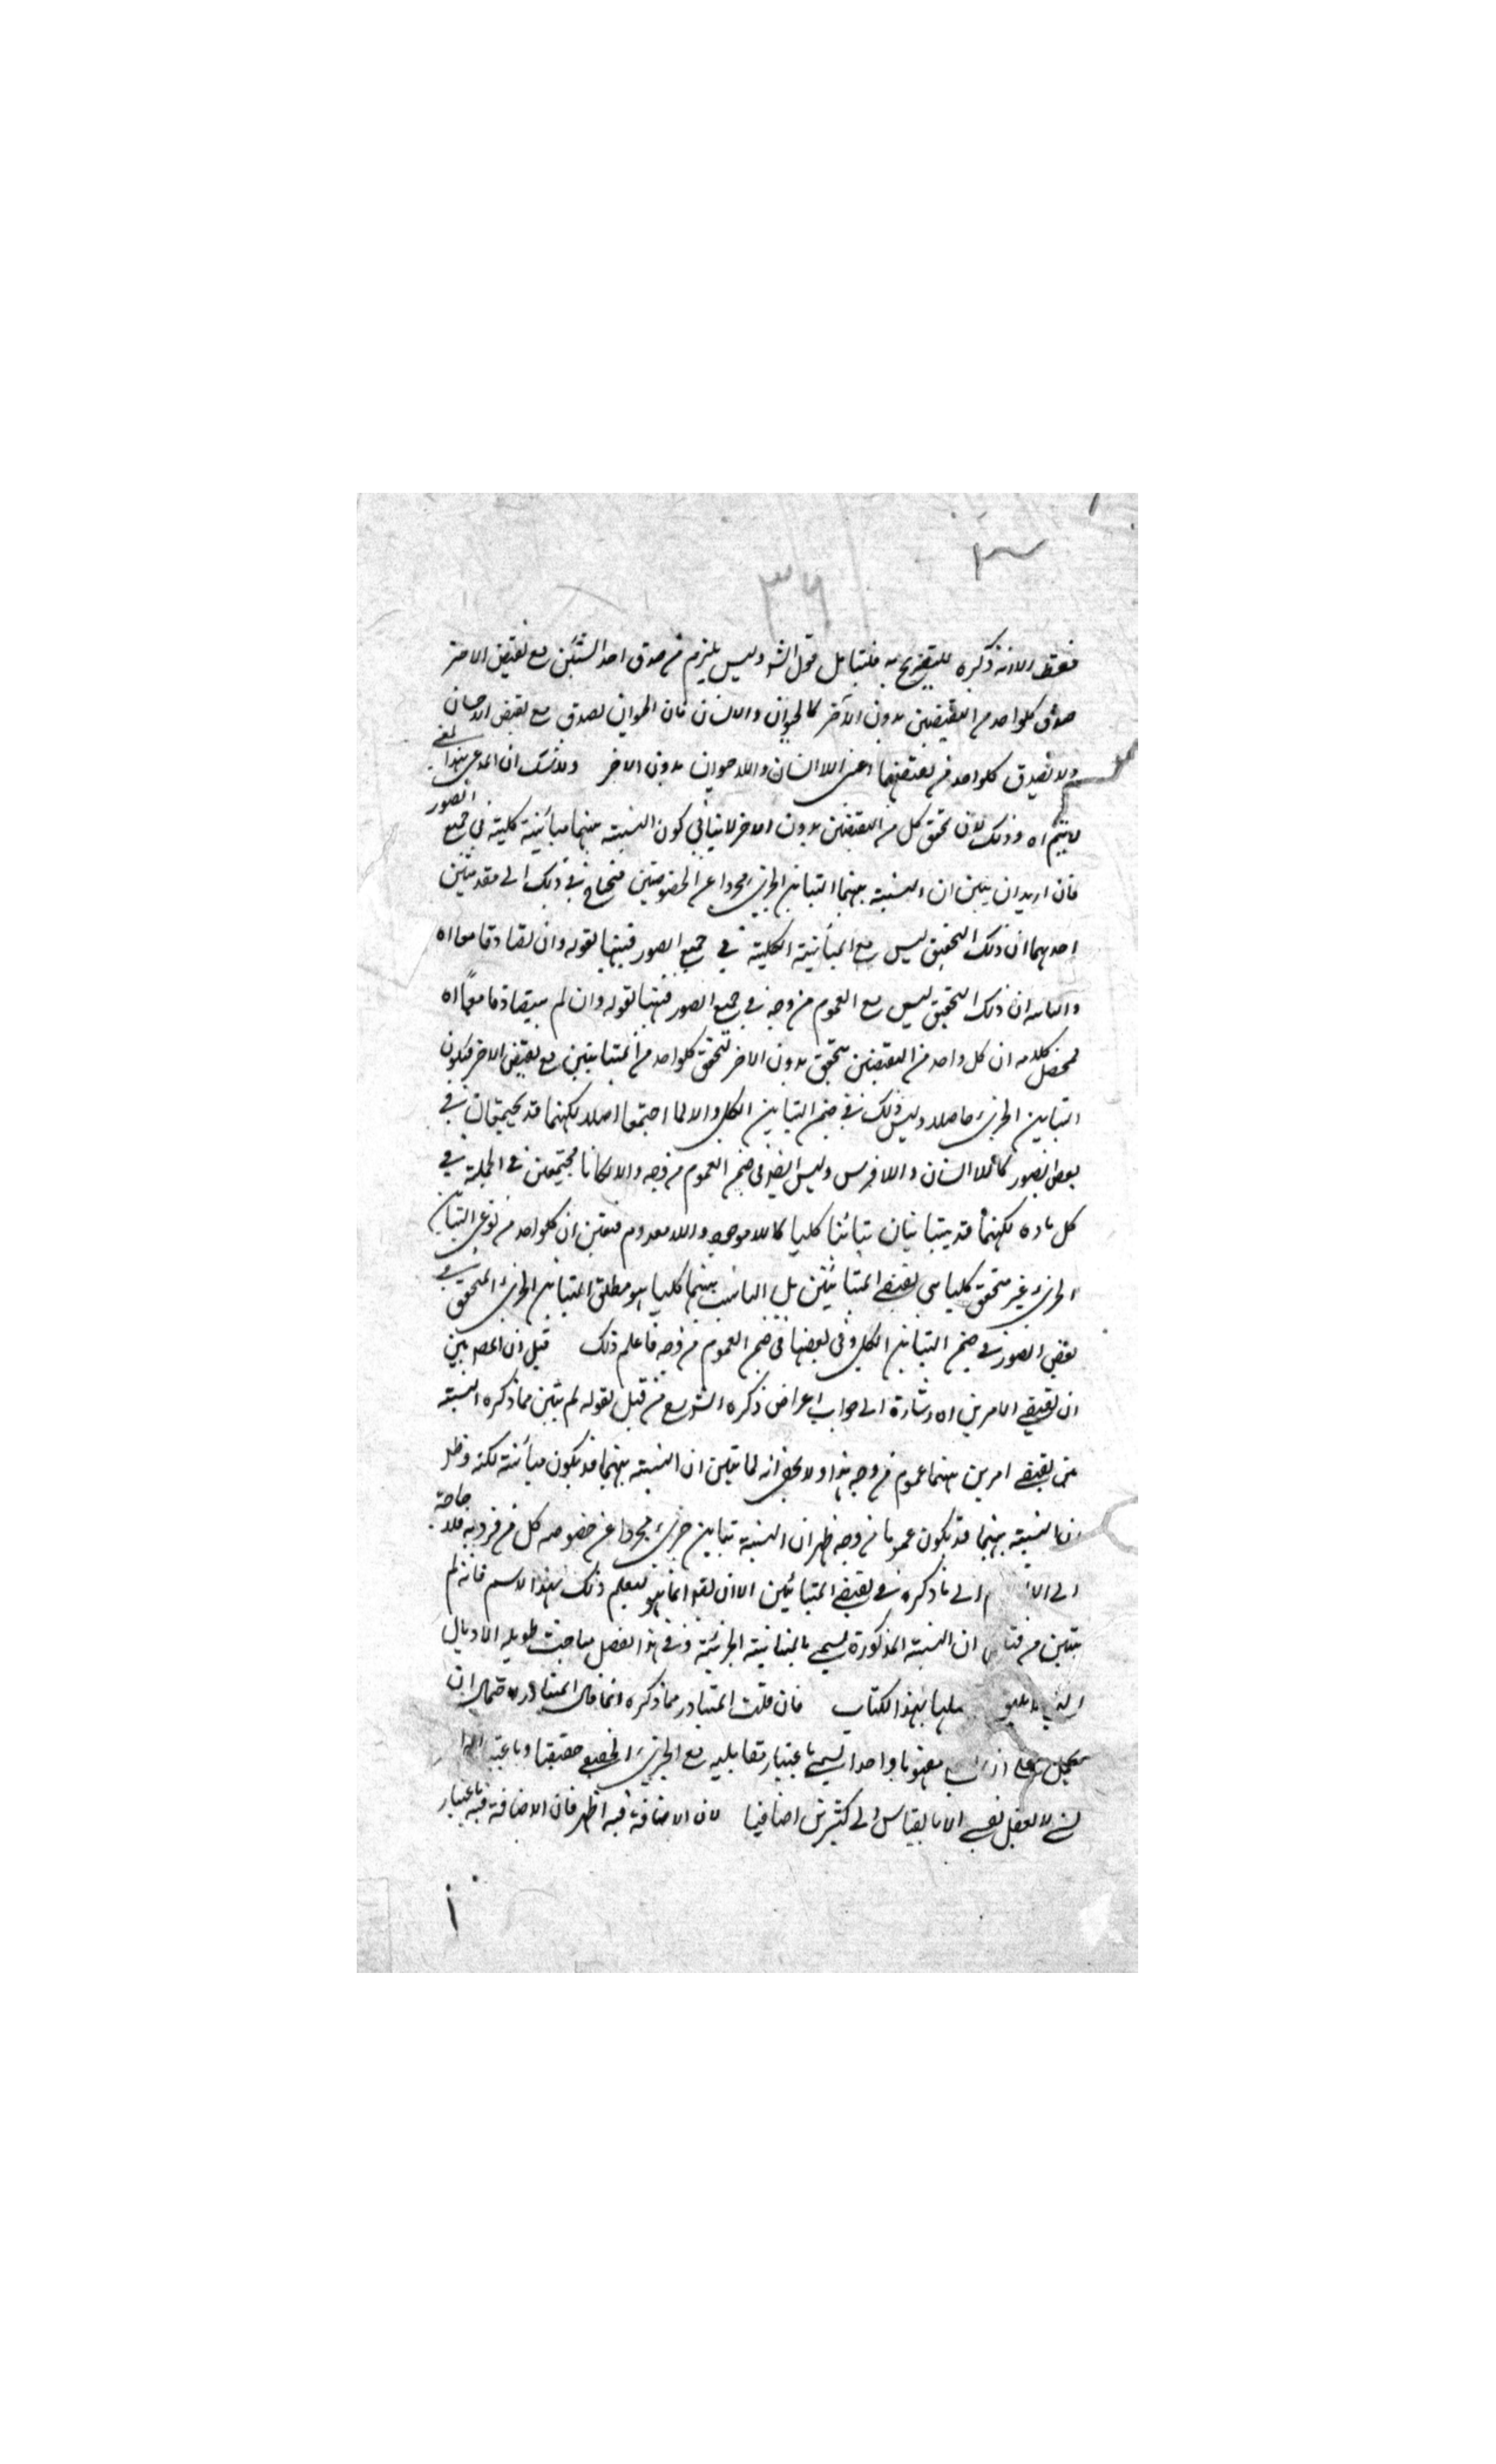 ٣٦
فقط الا انه ذكره للتفريع به فليتأمل قول الشر وليس يلزم من صدق احد الشيئين مع نقيض الاخر
صدق كلواحد من النقيضين بدون الآخر كالحيوان والانسان فان الحيوان يصدق مع نقيض الانسان
ولا يصدق كلواحد من نقيضهما اعنى اللاانسان واللاحيوان بدون الاخر ولا شك ان المدعى بهذا لمعنى
لا يتم اه وذلك لان تحقق كل من النقيضين بدون الاخر لا ينافى كون النسبة بينهما مباينة كلية فى جميع الصور
فان اريد ان يبين ان النسبة بينهما التباين الجزئى مجردا عن الخصوصيتين فيحتاج فى ذلك الى مقدمتين
احديهما ان ذلك التحقيق ليس مع المباينة الكلية فى جميع الصور فبينها بقوله وان تصادقا معا اه
والثانيه ان ذلك التحقيق ليس مع العموم من وجه فى جميع الصور فبينها بقوله وان لم يتصادقا معًا اه
فمحصل كلامه ان كل واحد من النقيضين يتحقق بدون الاخر لتحقق كلواحد من المتباينين مع نقيض الاخر فيكون
التباين الجزئى حاصلا وليس ذلك فى ضمن التباين الكلى والا لما اجتمعا اصلا لكنهما قد يجتمعان فى
بعض الصور كاللاانسان واللافرس وليس ايضا فى ضمن العموم من وجه والا لكانا مجتمعين فى الجملة فى
كل مادة لكنهما قد يتباينان تباينا كليا كاللاموجود واللامعدوم فتعين ان كلواحد من نوعى التباين
الجزئى غير متحقق كليا بين نقيضى المتباينين بل الثابت بينهما كليا هو مطلق التباين الجزئى المتحقق فى
بعض الصور فى ضمن التباين الكلى وفى بعضها فى ضمن العموم من وجه فاعلم ذلك قيل ان المصر بين
ان نقيضى الامرين اه اشارة الى جواب اعراض ذكره الشر مع من قبل بقوله لم يتبين مما ذكره النسبة
بين نقيضى امرين بينهما عموم من وجه هذا ولا يخفى انه لما تبين ان النسبة بينهما قد يكون مباينة لكنه وظهر
ان النسبة بينهما قد تكون عموما من وجه ظهر ان النسبة تباين جزئى مجردا عن خصوصه كل من فرديه فلا حاجة
الى الا الى ما ذكره فى نقيضى المتباينين الا ان يقو انما هو ليعلم ذلك بهذا الاسم فانه لم
يتبين من ان النسبة المذكورة يسمى بالمباينة الجزئية وفى هذا الفصل مباحث طويلة الاذيال
بهذا الكتاب فان قلت المتبادر مما ذكره انما قال المتبادر لاحتمال ان
على ان مفهوما واحدا يسمى باعتبار تقابله مع الجزئى الحقيقى حقيقيا وباعتبار
لا يعقل نفسى الا بالقياس الى كثيرين اضافيا لان الاضافة فيه اظهر فان الاضافة فيه باعتبار